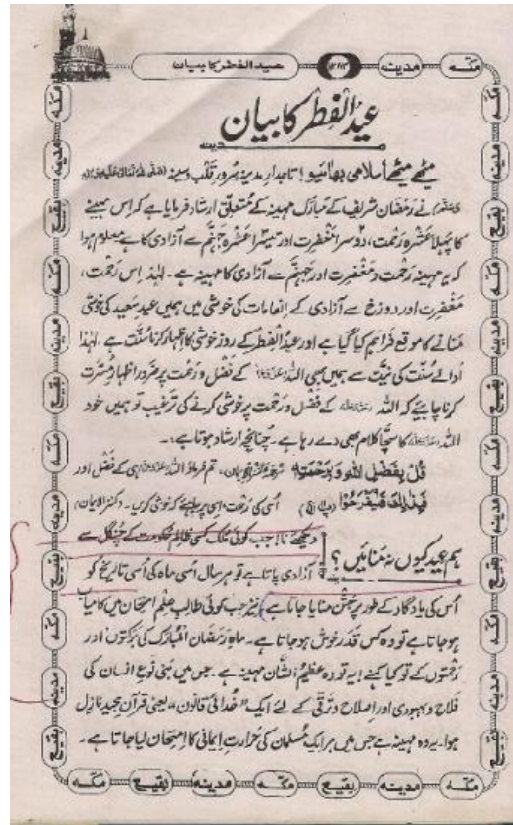 مکّہ مدینہ ۱۲۱۳ عید الفطر کا بیان
عیدُ الفِطر کا بیان
میٹھے میٹھے اسلامی بھائیو! تاجدارِ مدینہ سُرورِ قلب وسینہ
نے رَمَضان شریف کے مُبارَک مہینہ کے مُتعلِّق ارشاد فرمایا ہے کہ اس مہینے
کا پہلا عشرہ رَحمت، دُوسرا مَغفِرت اور تیسرا عشرہ جہنّم سے آزادی کا ہے معلوم ہوا
کہ یہ مہینہ رَحمت و مَغفِرت اور جہنّم سے آزادی کا مہینہ ہے۔ لہٰذا اِس رَحمت،
مَغفِرت اور دوزخ سے آزادی کے اِنعامات کی خوشی میں ہمیں عید سعید کی خوشی
مَنانے کا موقع فَراہم کیا گیا ہے اور عیدُ الفِطر کے روز خوشی کا اِظہار کرنا سُنّت ہے لہٰذا
ادائے سُنّت کی نیّت سے ہمیں بھی اللہ کے فَضل و رَحمت پر ضَرور اظہارِ مُسرّت
کرنا چاہیئے کہ اللہ کے فضل و رَحمت پر خوشی کرنے کی ترغیب تو ہمیں خود
اللہ کا سچّا کلام بھی دے رہا ہے۔ چُنانچہ اِرشاد ہوتا ہے:۔
قُلْ بِفَضْلِ اللهِ وَبِرَحْمَتِهٖ تم فرماؤ اللہ ہی کے فضل اور
فَبِذٰلِكَ فَلْيَفْرَحُوْا اُسی کی رَحمت، اِسی پر چاہیئے کہ خوشی کریں۔ (کنزالایمان)
ہم عید کیوں نہ مَنائیں؟ دیکھئے نا! جب کوئی مُلک کسی ظالِم حُکومت کے چُنگل سے
آزادی پاتا ہے تو ہر سال اُسی ماہ کی اُسی تاریخ کو
اُس کی یادگار کے طور پر جشن منایا جاتا ہے نیز جب کوئی طالبِ علم امتحان میں کامیاب
ہو جاتا ہے تو وہ کس قَدَر خوش ہو جاتا ہے۔ ماہِ رَمَضان المُبارَک کی بَرَکتوں اور
رَحمتوں کے تو کیا کہنے! یہ تو وہ عظیمُ الشّان مہینہ ہے۔ جس میں بَنی نوعِ انسان کی
فَلاح و بہبودی اور اِصلاح و تَرقّی کے لئے ایک "خُدائی قانون" یعنی قرآن مجید نازِل
ہوا۔ یہ وہ مہینہ ہے جس میں ہر ایک مُسلمان کی حَرارتِ اِیمانی کا اِمتِحان لیا جاتا ہے۔
مکّہ مدینہ بقیع مکّہ مدینہ بقیع مدینہ مکّہ